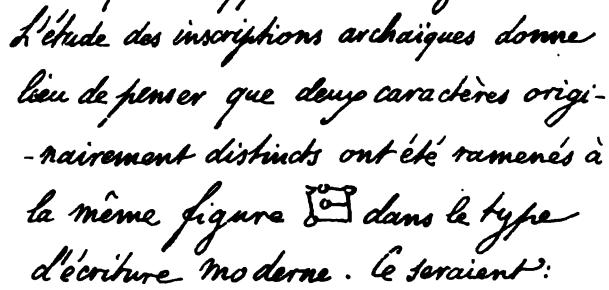 L'étude des inscriptions archaïques donne
lieu de penser que deux caractères origi-
-nairement distincts ont été ramenés à
la même figure dans le type
d'écriture moderne. Ce seraient :